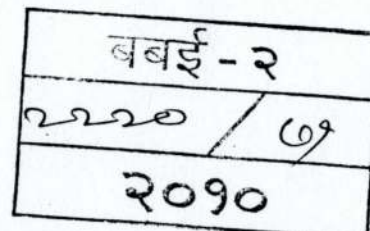 बबई - २
२२२० / ७१
२०१०